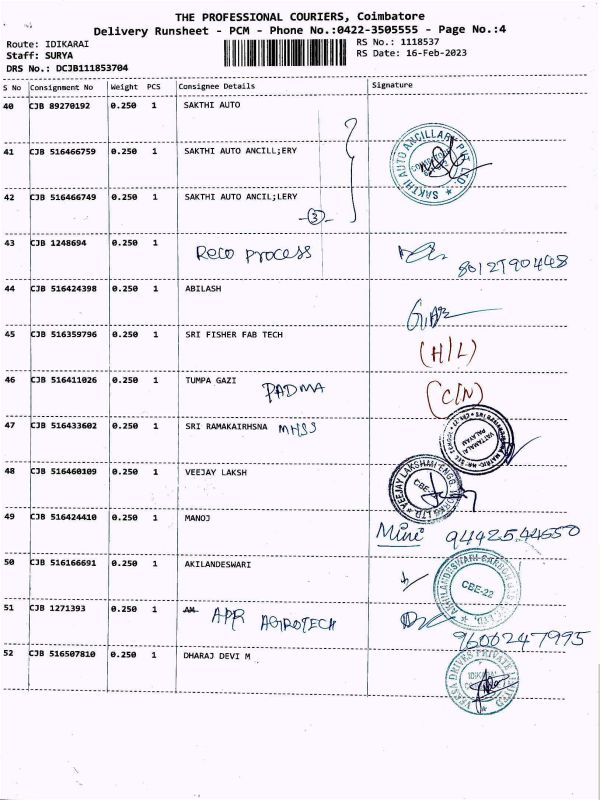 THE PROFESSIONAL COURIERS, Coimbatore
Delivery Runsheet - PCM - Phone No.:0422-3505555 - Page No.:4
Route: IDIKARAI
Staff: SURYA
DRS No.: DCJB111853704
RS No.: 1118537
RS Date: 16-Feb-2023
S No Consignment No Weight PCS Consignee Details Signature
40 CJB 89270192 0.250 1 SAKTHI AUTO
41 CJB 516466759 0.250 1 SAKTHI AUTO ANCILL;ERY
SAKTHI AUTO ANCILLARY PVT. LTD.
42 CJB 516466749 0.250 1 SAKTHI AUTO ANCIL;LERY
3
43 CJB 1248694 0.250 1 Reco process
44 CJB 516424398 0.250 1 ABILASH
45 CJB 516359796 0.250 1 SRI FISHER FAB TECH (H/L)
46 CJB 516411026 0.250 1 TUMPA GAZI PADMA (C/N)
47 CJB 516433602 0.250 1 SRI RAMAKAIRHSNA MHSS
VATTAMALAI PALAYAM
48 CJB 516460109 0.250 1 VEEJAY LAKSH
VEEJAY LAKSHMI ENGG. LTD.
49 CJB 516424410 0.250 1 MANOJ Mini 9442544650
50 CJB 516166691 0.250 1 AKILANDESWARI
CBE-22
51 CJB 1271393 0.250 1 APR AGROTECH 9600247995
52 CJB 516507810 0.250 1 DHARAJ DEVI M
DRIVES PRIVATE LIMITED